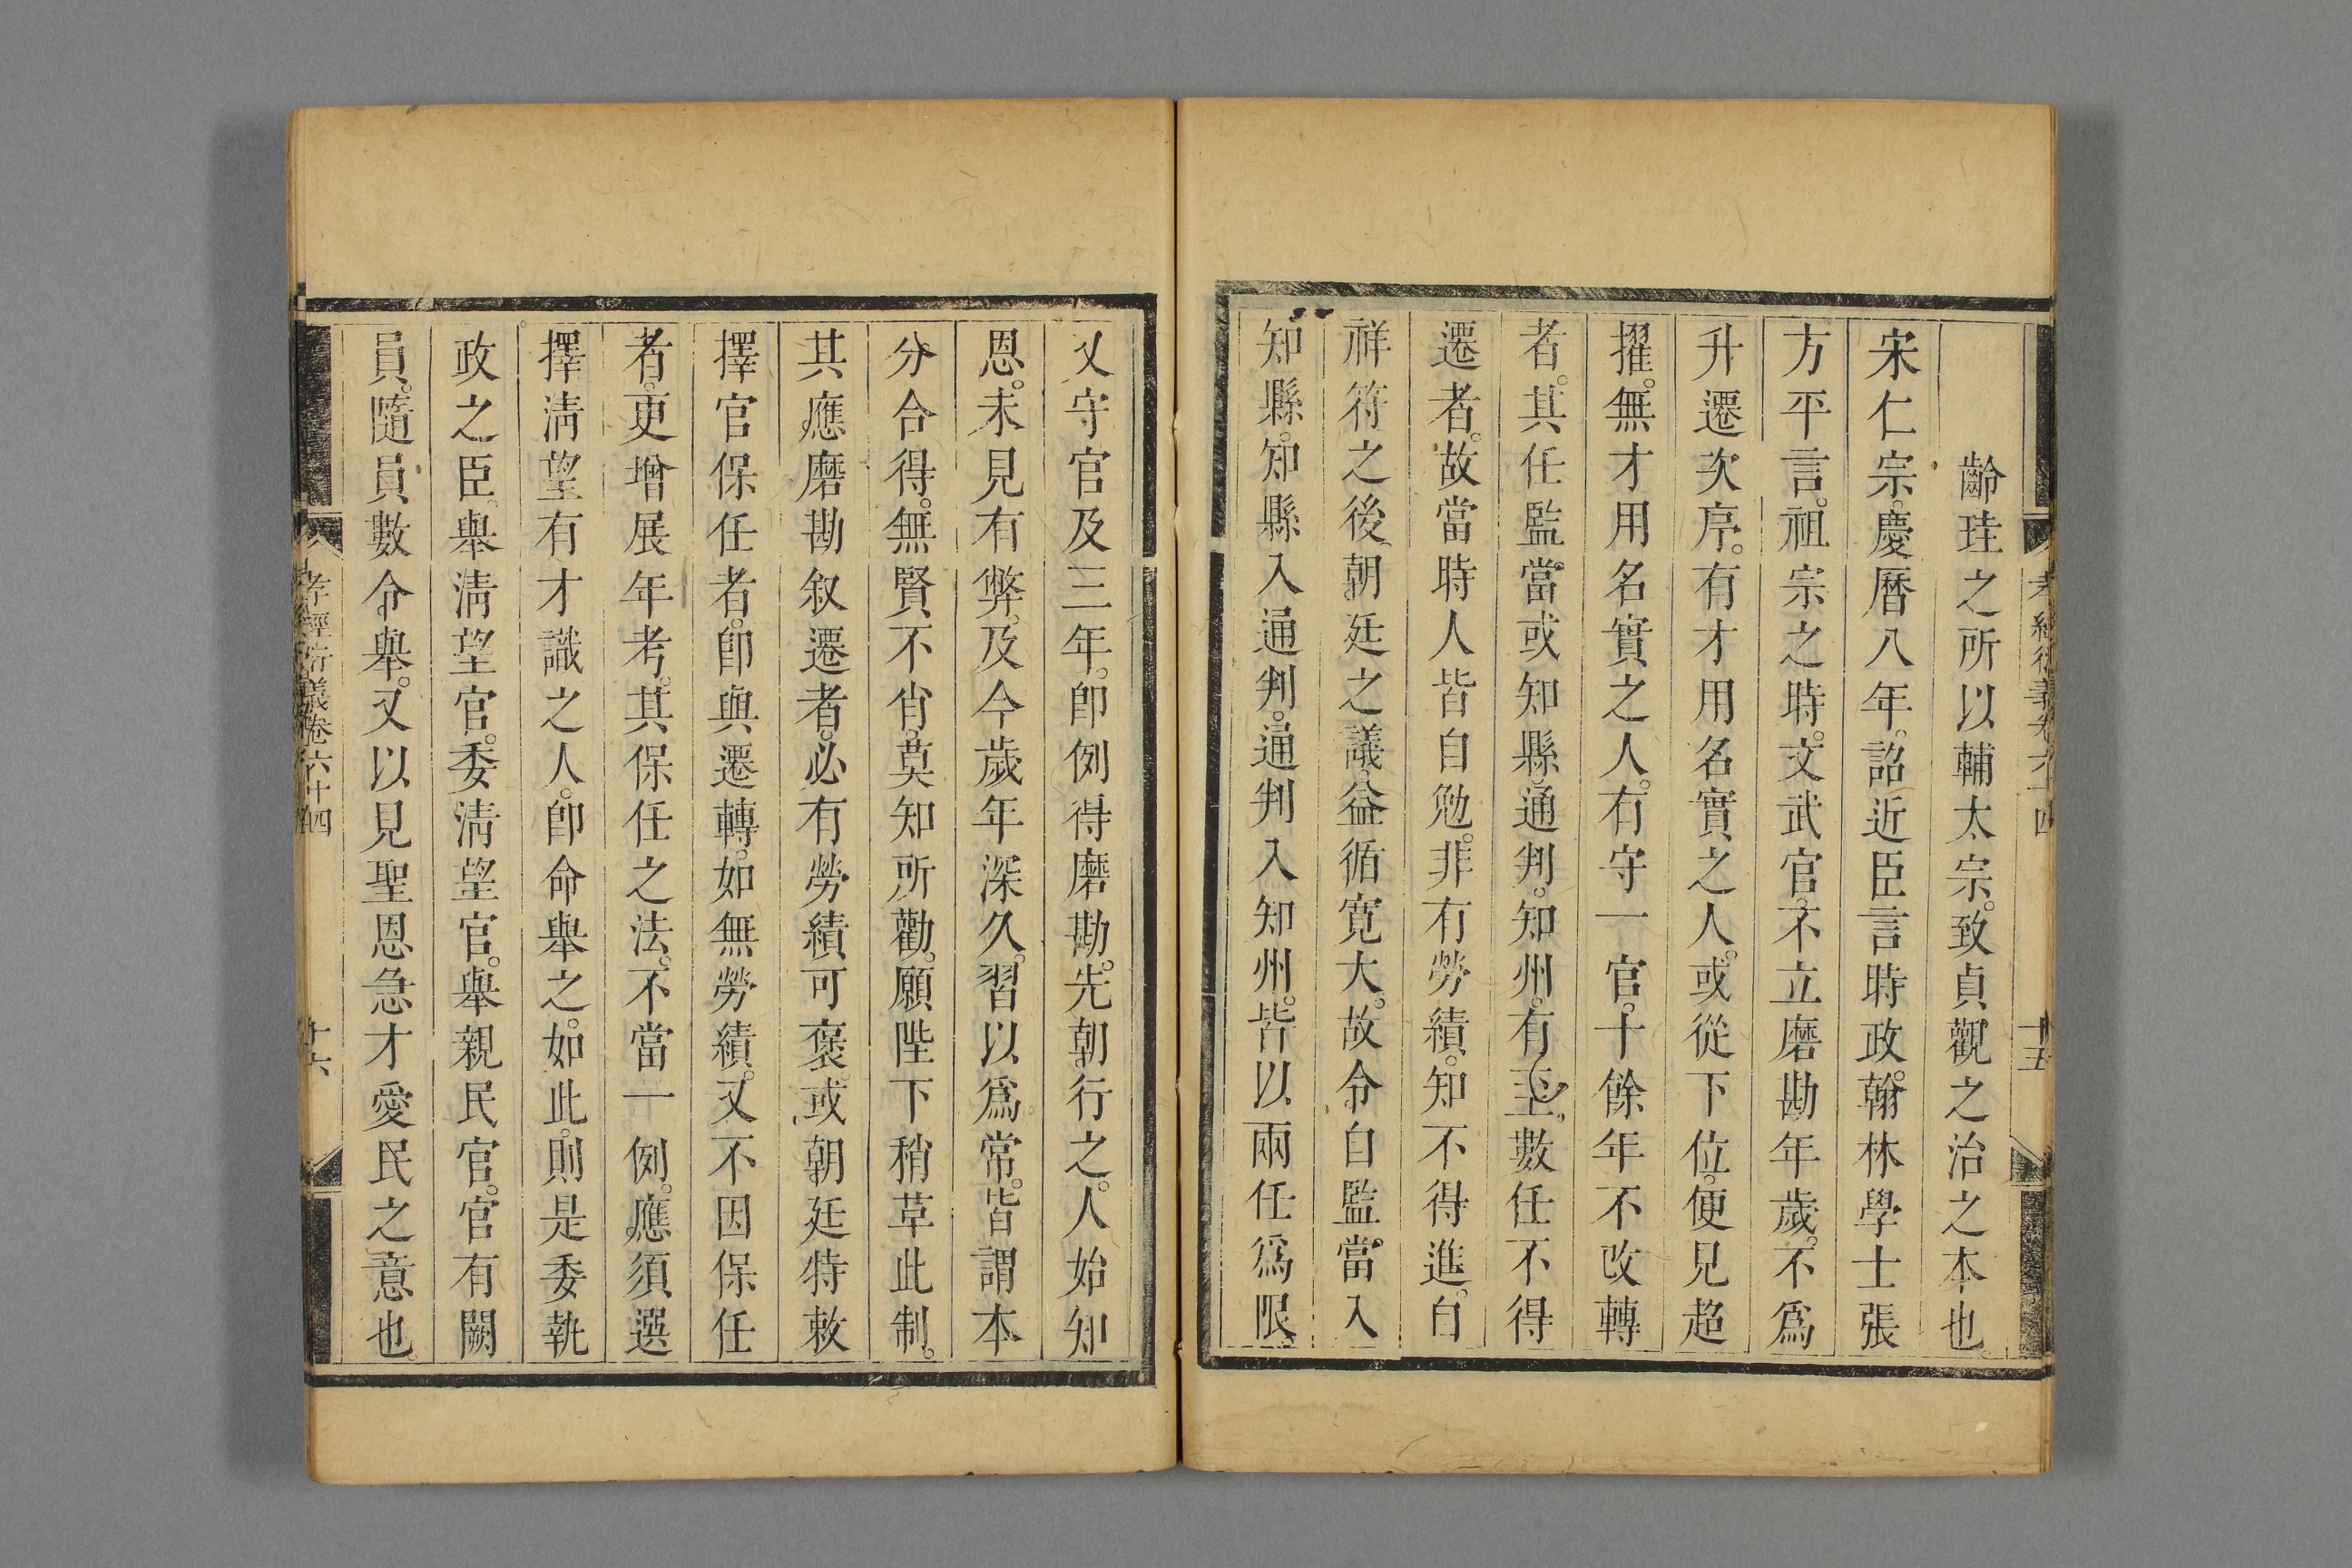 孝經衍義卷六十四
十五
齡珪之所以輔太宗。致貞觀之治之本也。
宋仁宗。慶曆八年。詔近臣言時政。翰林學士張
方平言。祖宗之時。文武官。不立磨勘年歲。不爲
升遷次序。有才用名實之人。或從下位。便見超
擢。無才用名實之人。有守一官。十餘年不改轉
者。其任監當。或知縣。通判。知州。有至。數任不得
遷者。故當時人皆自勉。非有勞績。知不得進。自
祥符之後。朝廷之議。益循寬大。故令自監當。入
知縣。知縣入通判。通判入知州。皆以兩任爲限。
又守官及三年。卽例得磨勘。先朝行之。人始知
恩。未見有弊。及今歲年深久。習以爲常。皆謂本
分合得。無賢不肖。莫知所勸。願陛下稍革此制。
其應磨勘叙遷者。必有勞績可褒。或朝廷特敕
擇官保任者。卽與遷轉。如無勞績。又不因保任
者。更增展年考。其保任之法。不當一例。應須選
擇淸望有才識之人。卽命舉之。如此。則是委執
政之臣。舉淸望官。委淸望官。舉親民官。官有闕
員。隨員數令舉。又以見聖恩急才愛民之意也。
孝經衍義卷六十四
十六